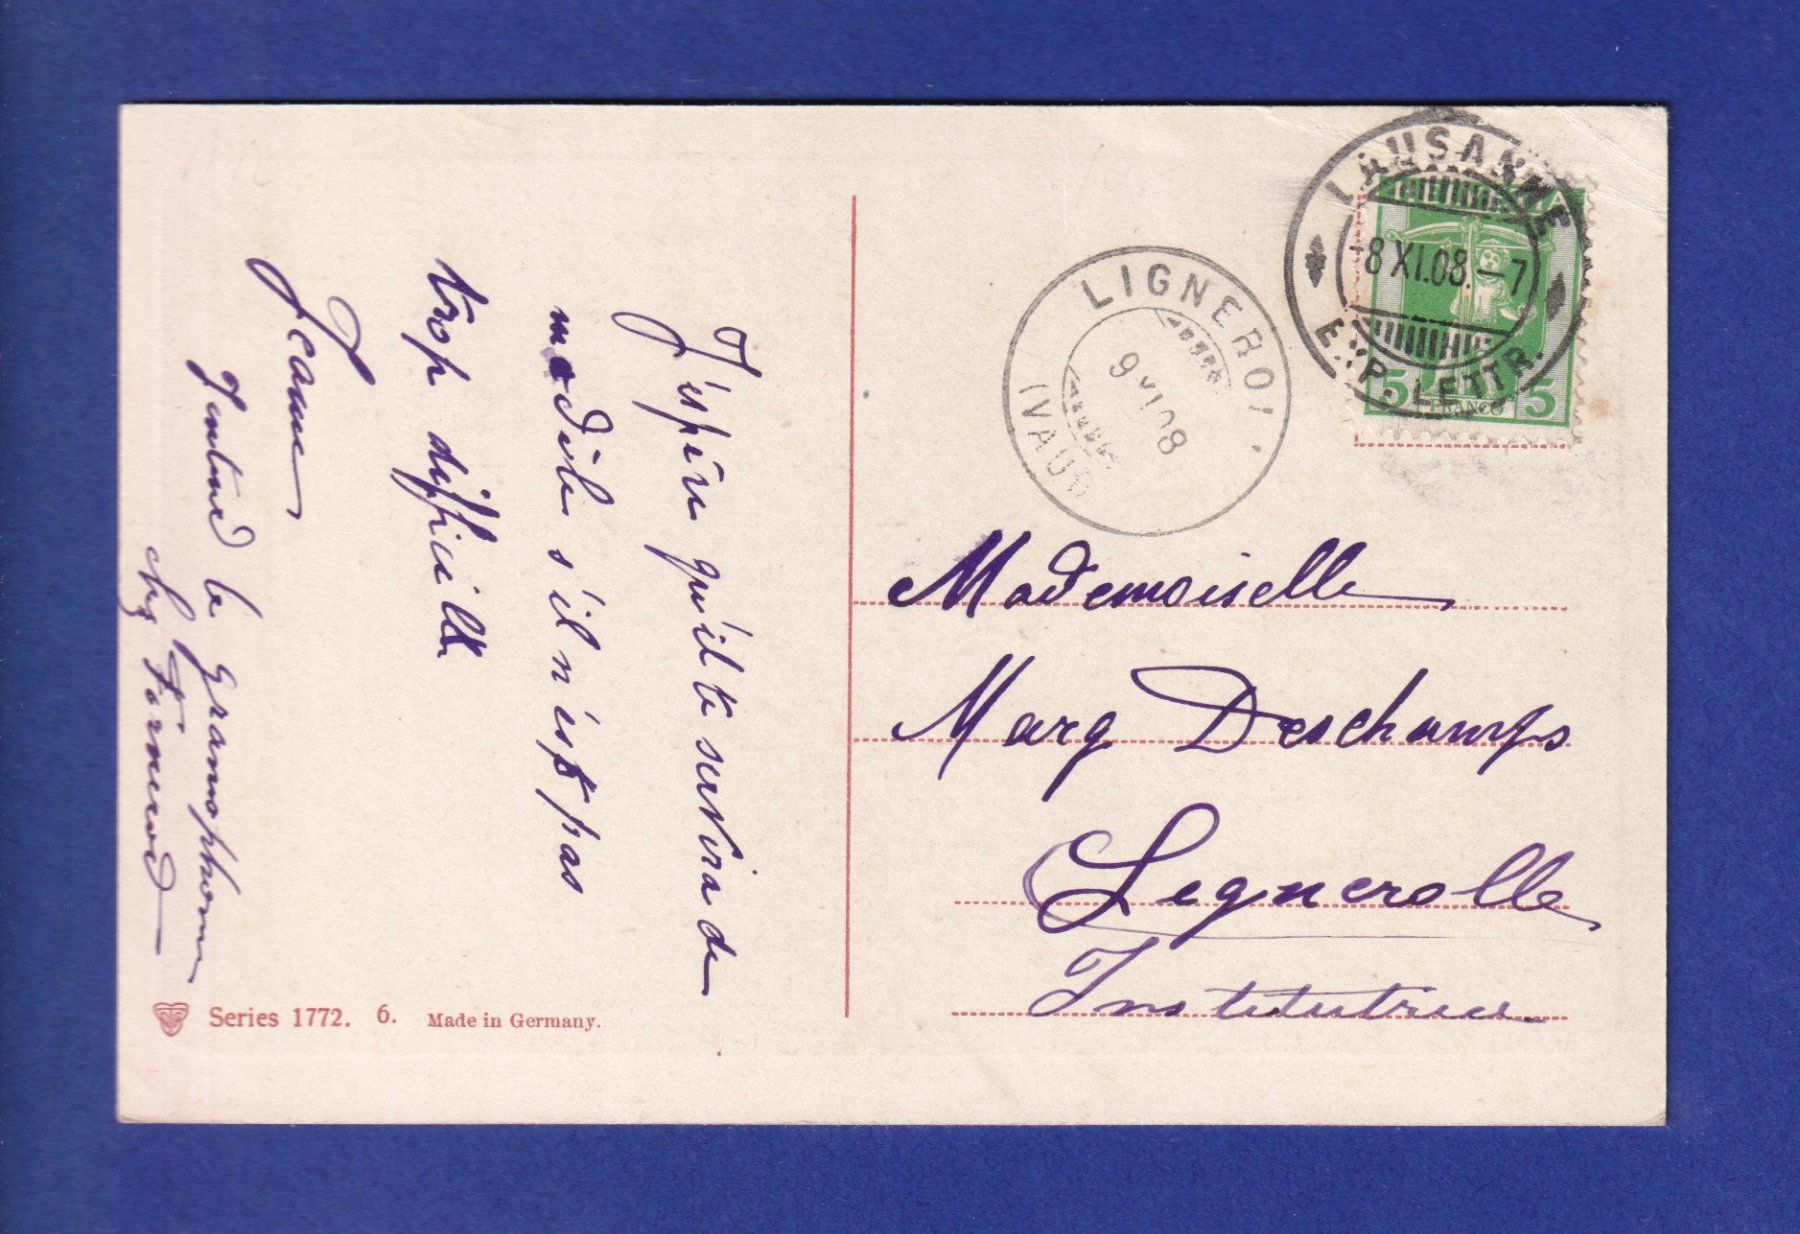 J'espère qu'il te servira de
modèle s'il n'est pas
trop difficile
Jeanne
J'entend le gramophone
chez Fornerod
Series 1772. 6. Made in Germany.
LAUSANNE
-8 XI.08.-7
EXP. LETTR.
5 FRANCO 5
LIGNEROL
9 XI 08
(VAUD)
Mademoiselle
Marg Deschamps
Lignerolle
Institutrice